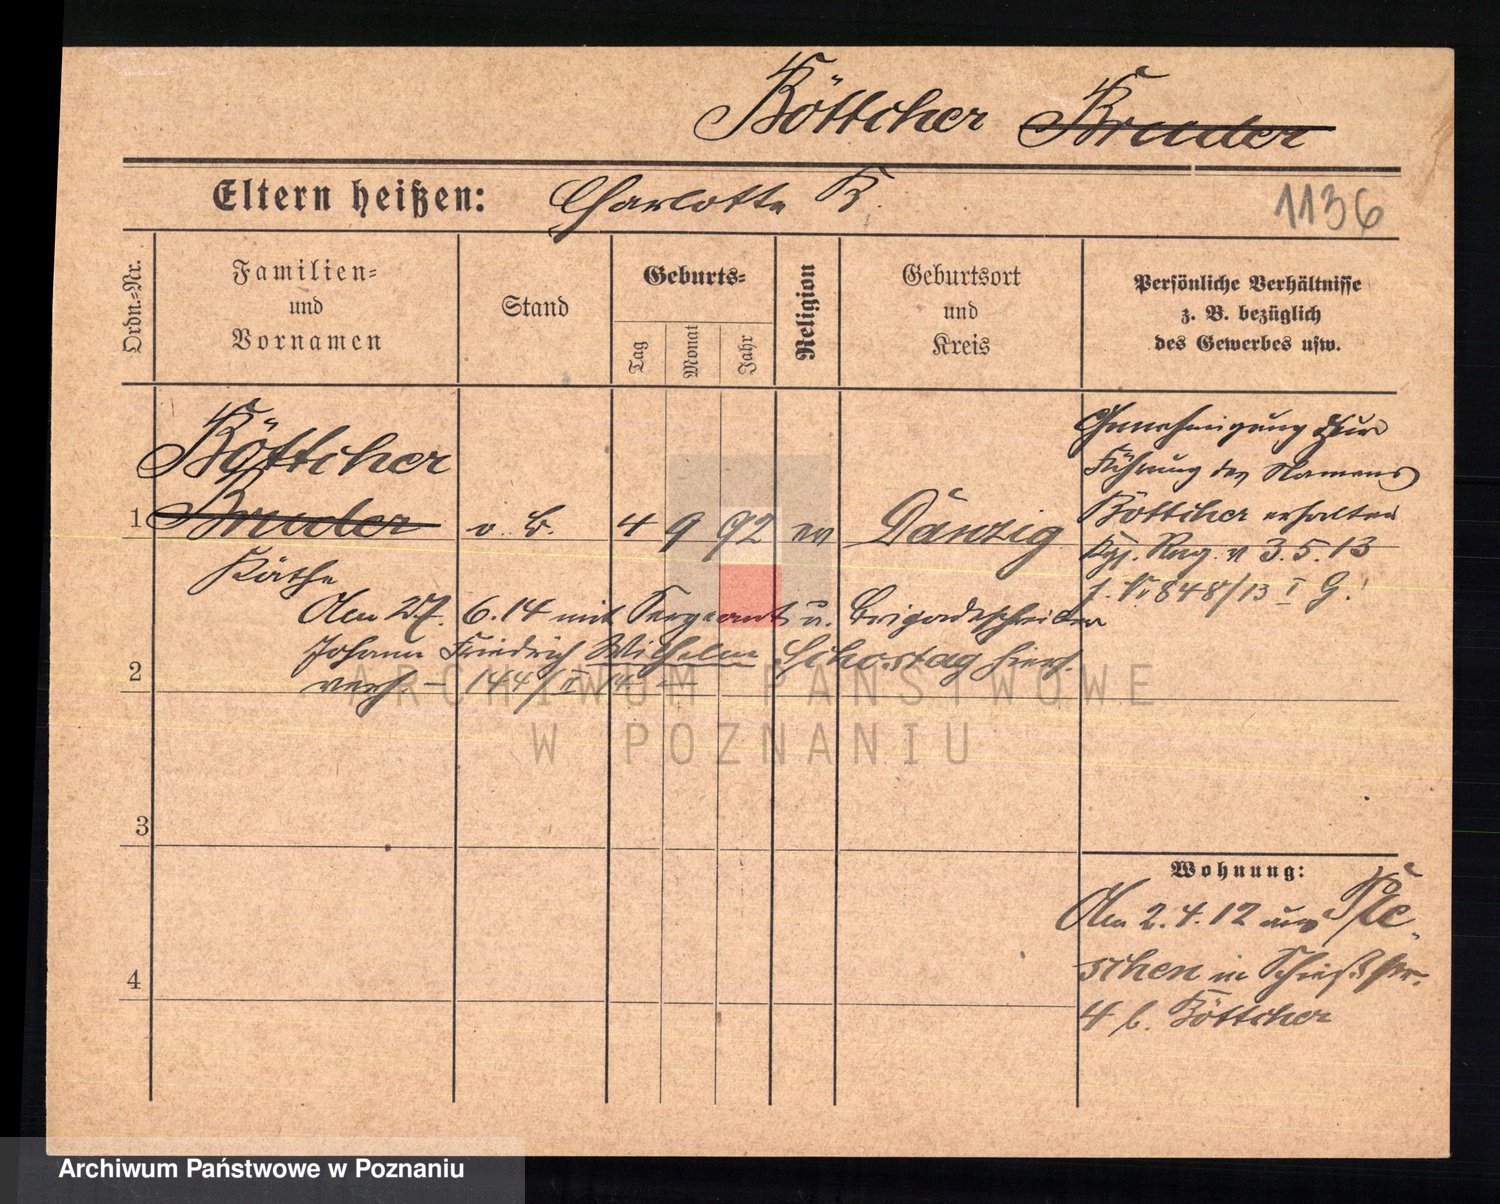 Böttcher Bruder
Eltern heißen: Charlotte B.
1136
Ordn.-Nr.
Familien-
und
Vornamen
Stand
Geburts-
Tag
Monat
Jahr
Religion
Geburtsort
und
Kreis
Persönliche Verhältnisse
z. B. bezüglich
des Gewerbes usw.
Böttcher
1 Bruder o. B. 4 9 92 ev Danzig
Käthe
Genehmigung zur
Führung des Namens
Böttcher erhalten
Kgl. Reg. v 3.5.13
848/13 I G.
Am 27. 6.14 mit Sergeant u. Brigadeschreiber
Johann Friedrich Wilhelm Schostag hier
2 verh. – 144/II 14 –
3
4
Wohnung:
Am 2.4.12 aus Ple-
schen in Schießstr.
4 b. Böttcher
ARCHIWUM PAŃSTWOWE
W POZNANIU
Archiwum Państwowe w Poznaniu